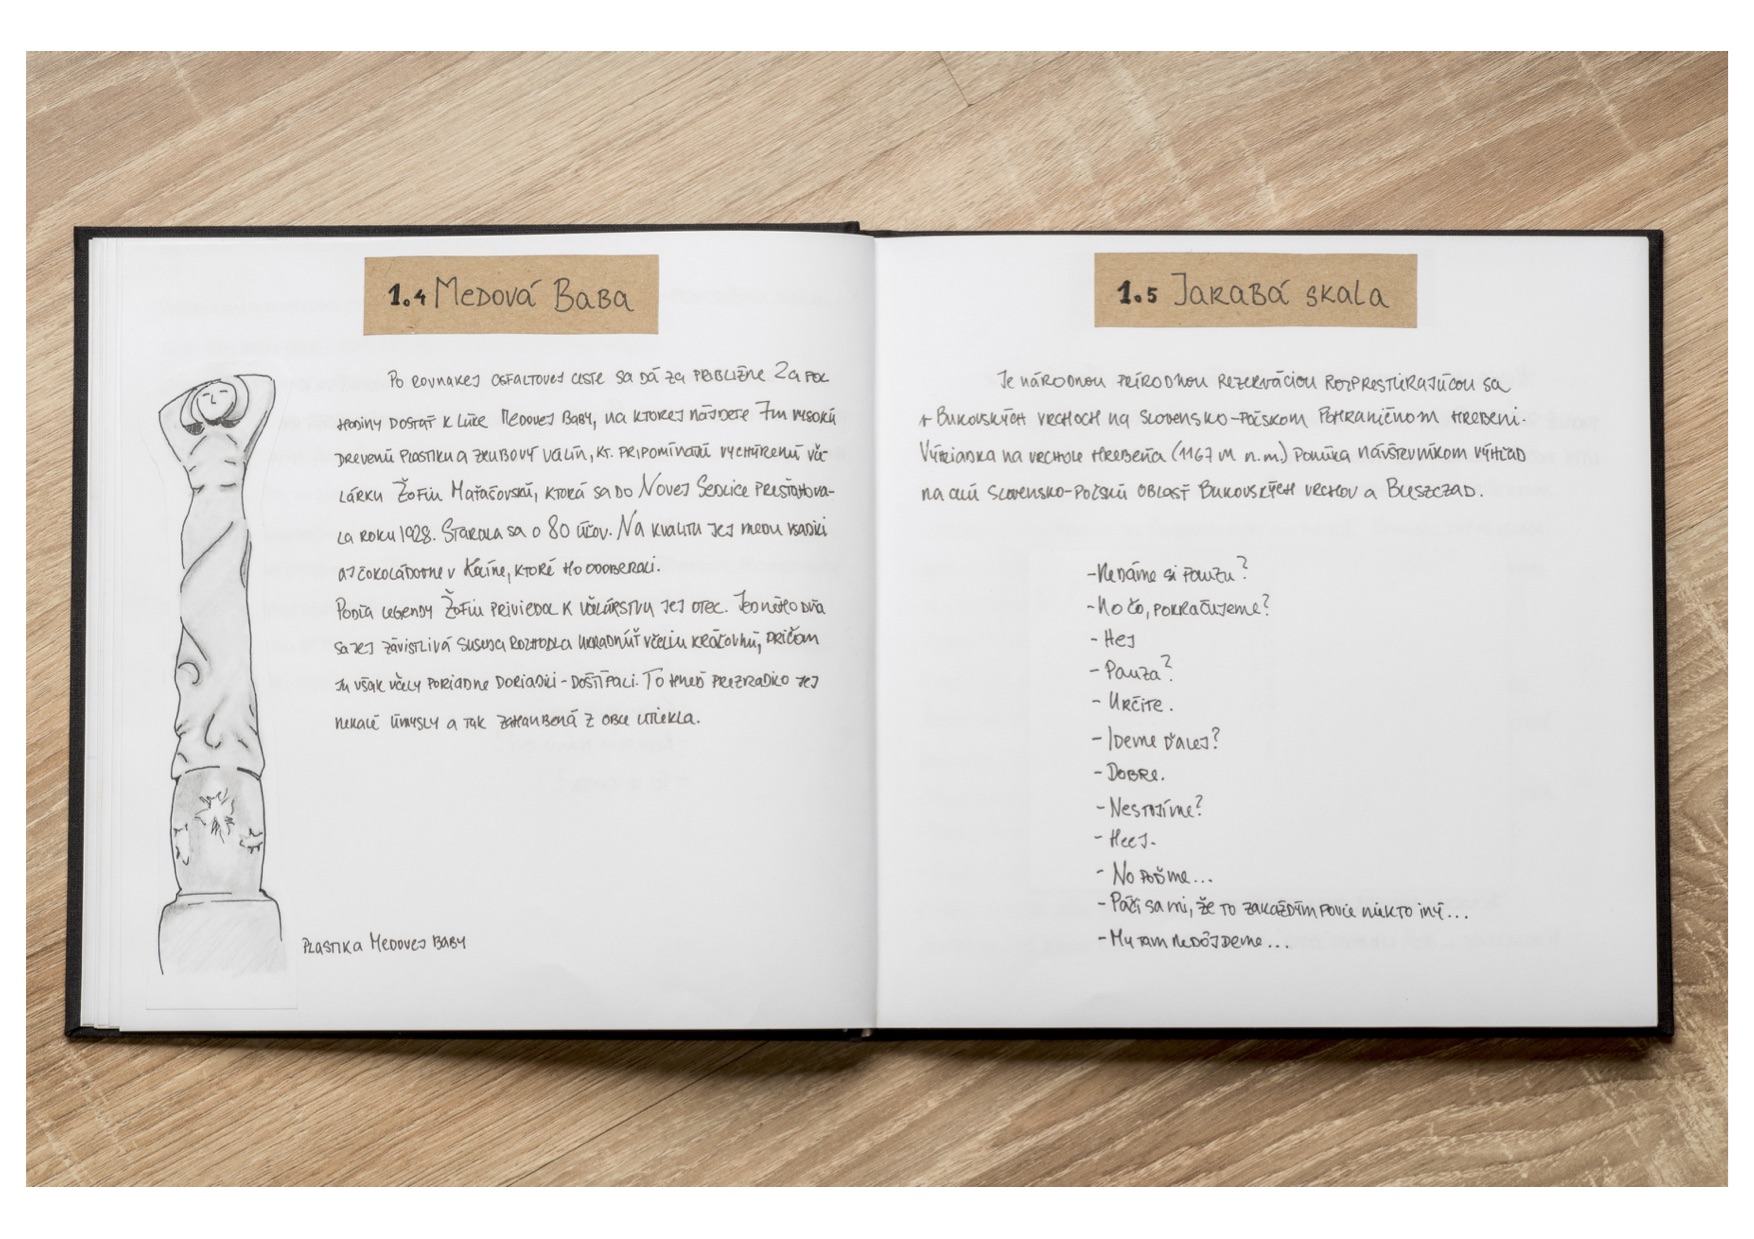 1.4 Medová Baba
Po rovnakej asfaltovej ceste sa dá za približne 2 a pol
hodiny dostať k lúke Medovej Baby, na ktorej nájdete 7m vysokú
drevenú plastiku a zrubový včelín, kt. pripomínajú vychýrenú vče
lárku Žofiu Maťašovskú, ktorá sa do Novej Sedlice presťahova-
la roku 1928. Starala sa o 80 úľov. Na kvalitu jej medu vsadili
aj čokoládovne v Kolíne, ktoré ho odoberali.
Podľa legendy Žofiu priviedol k včelárstvu jej otec. Jedného dňa
sa jej závistlivá suseda rozhodla ukradnúť včeliu kráľovnú, pričom
ju však včely poriadne doriadili - doštípali. To hneď prezradilo jej
nekalé úmysly a tak zahanbená z obce utiekla.
Plastika Medovej Baby
1.5 Jarabá skala
Je národnou prírodnou rezerváciou rozprestúrajúcou sa
v Bukovských vrchoch na slovensko-poľskom pohraničnom hrebeni.
Vyhliadka na vrchole hrebeňa (1167 m n.m.) ponúka návštevníkom výhľad
na celú slovensko-poľskú oblasť Bukovských vrchov a Bieszczad.
- Nedáme si pauzu?
- No čo, pokračujeme?
- Hej
- Pauza?
- Určite.
- Ideme ďalej?
- Dobre.
- Nestojíme?
- Heej.
- No poďme...
- Páči sa mi, že to zakaždým povie niekto iný...
- My tam nedôjdeme...